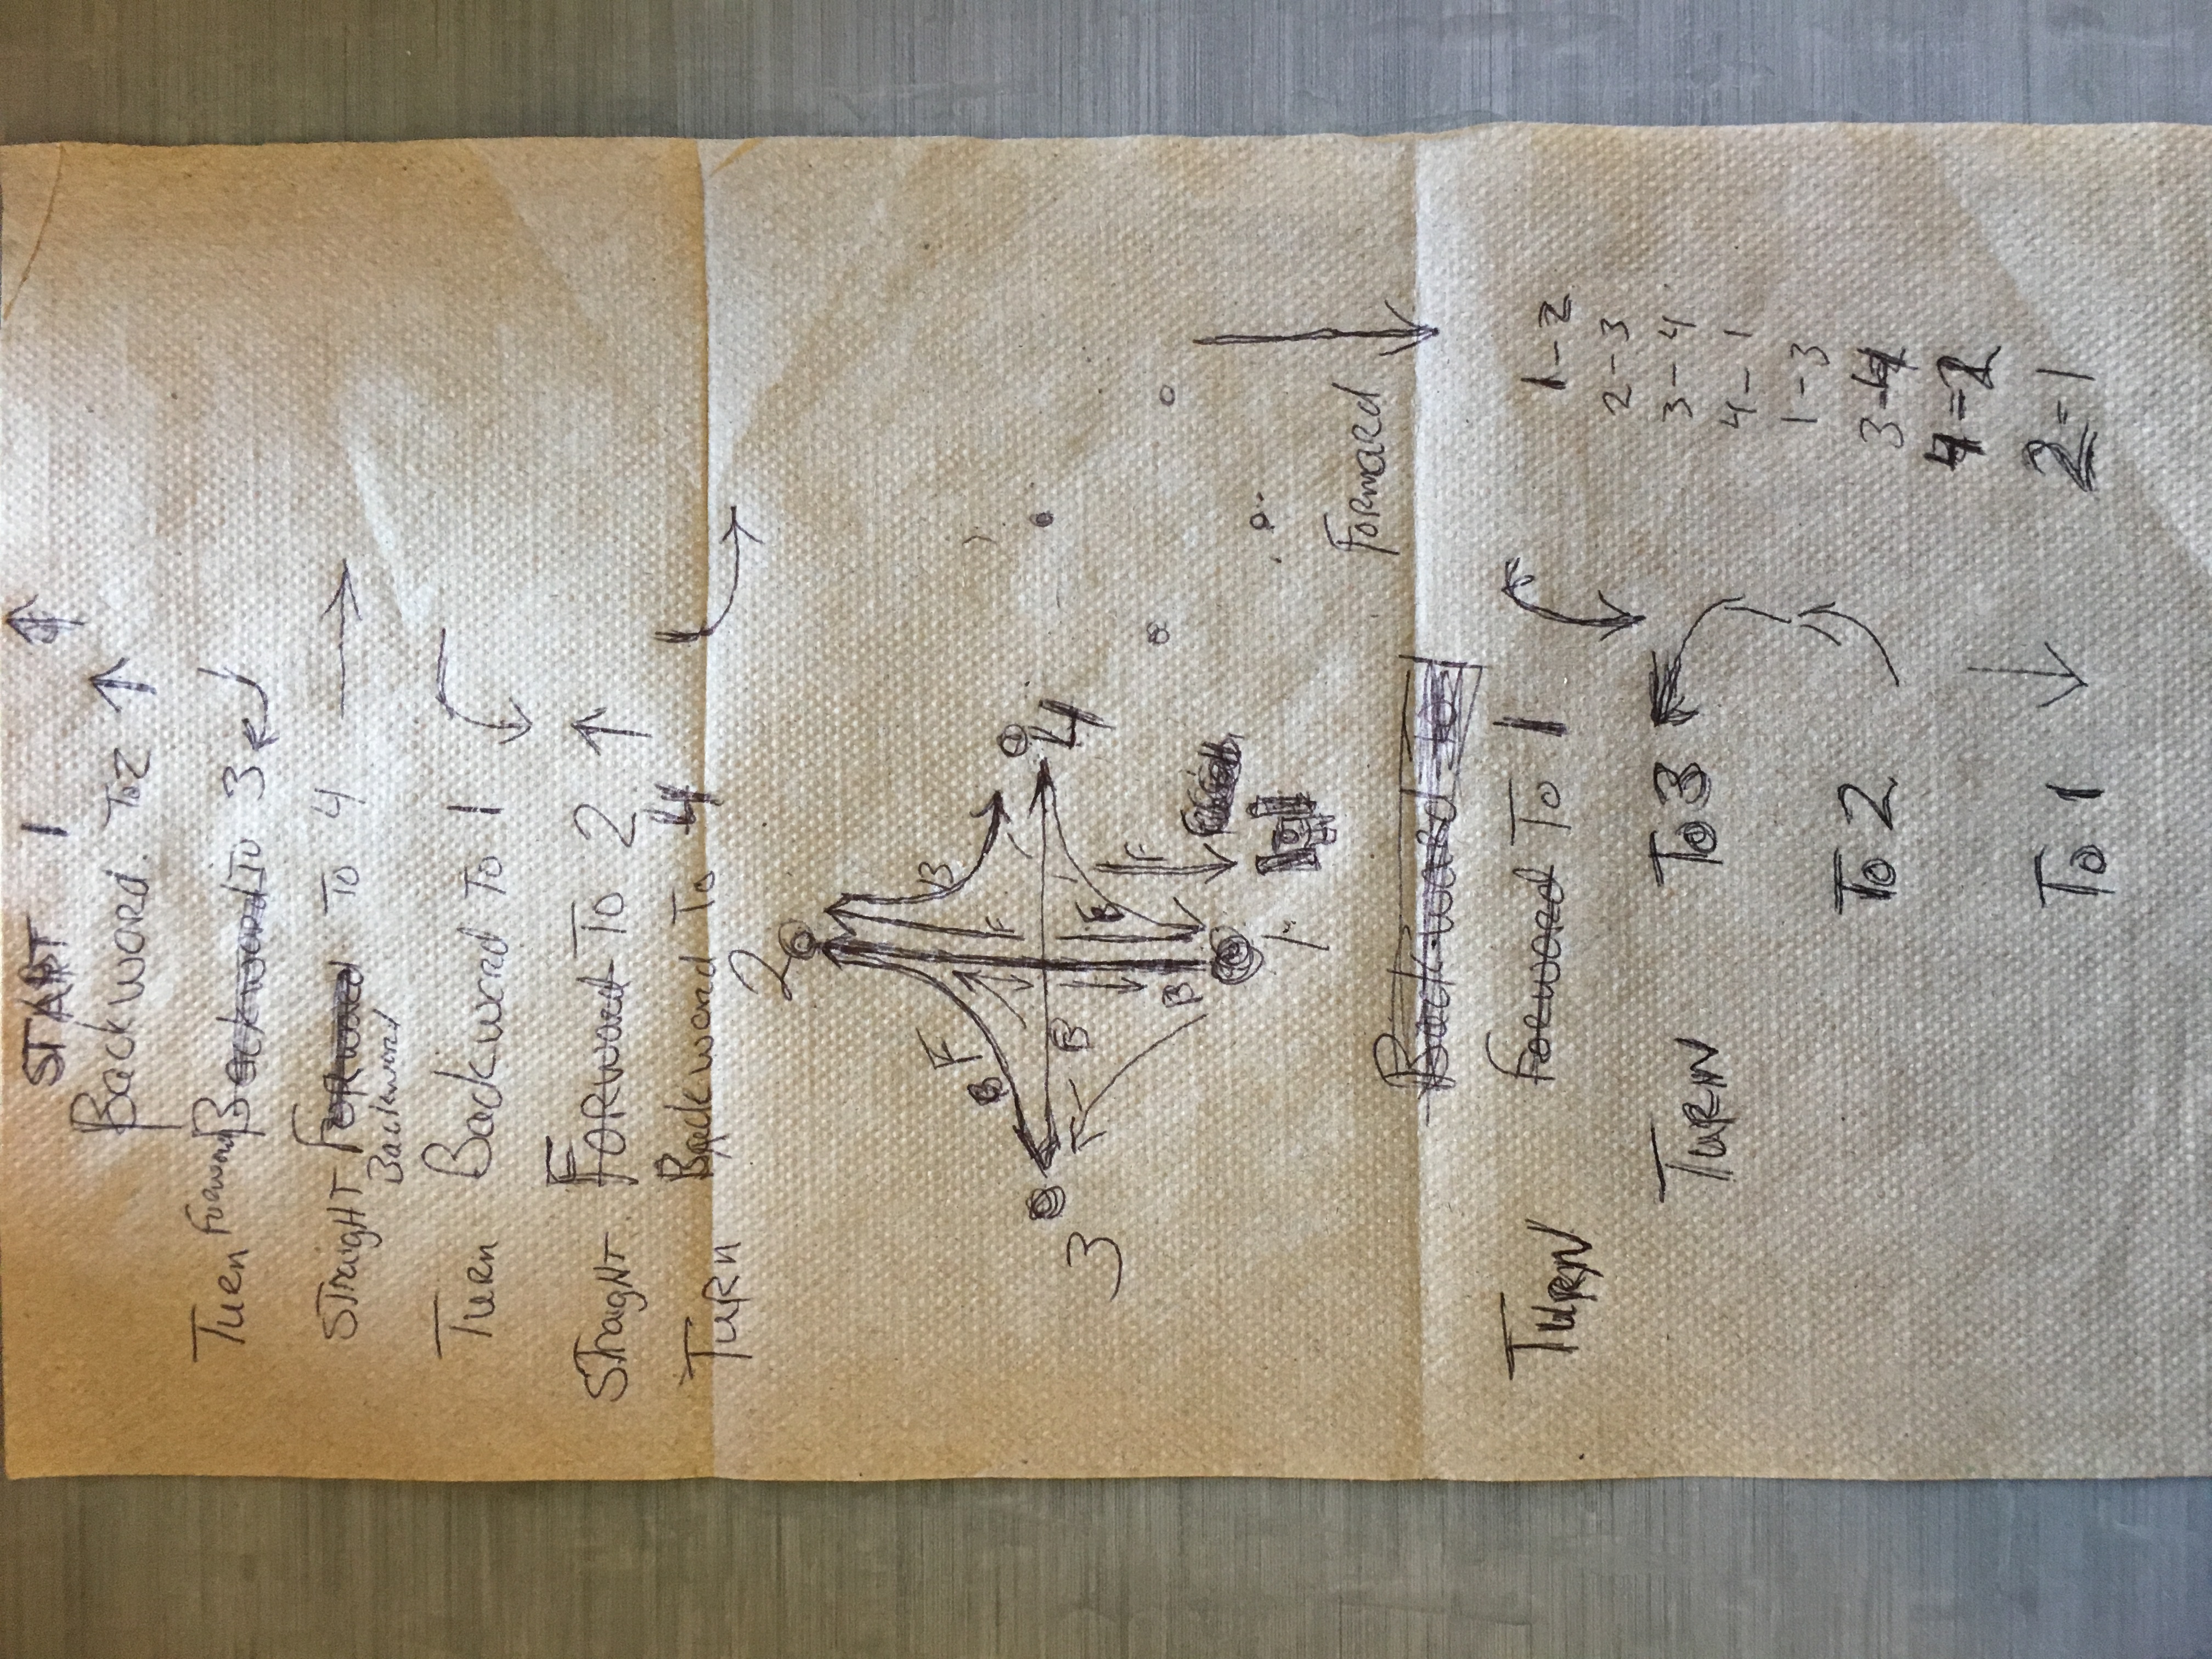 START 1 ↑
Backward. To 2 ↑
Turn Forward Backward To 3
Straight Forward To 4 →
Backward
Turn Backward To 1
Straight Forward To 2 ↑
Turn Backward To 4
2
F B
B
F
3 B 4
B F
B
1
Forward ↓
Backward To
TURN Forward To 1
TURN To 3
To 2
To 1 ↓
1-2
2-3
3-4
4-1
1-3
3-4
4=2
2=1